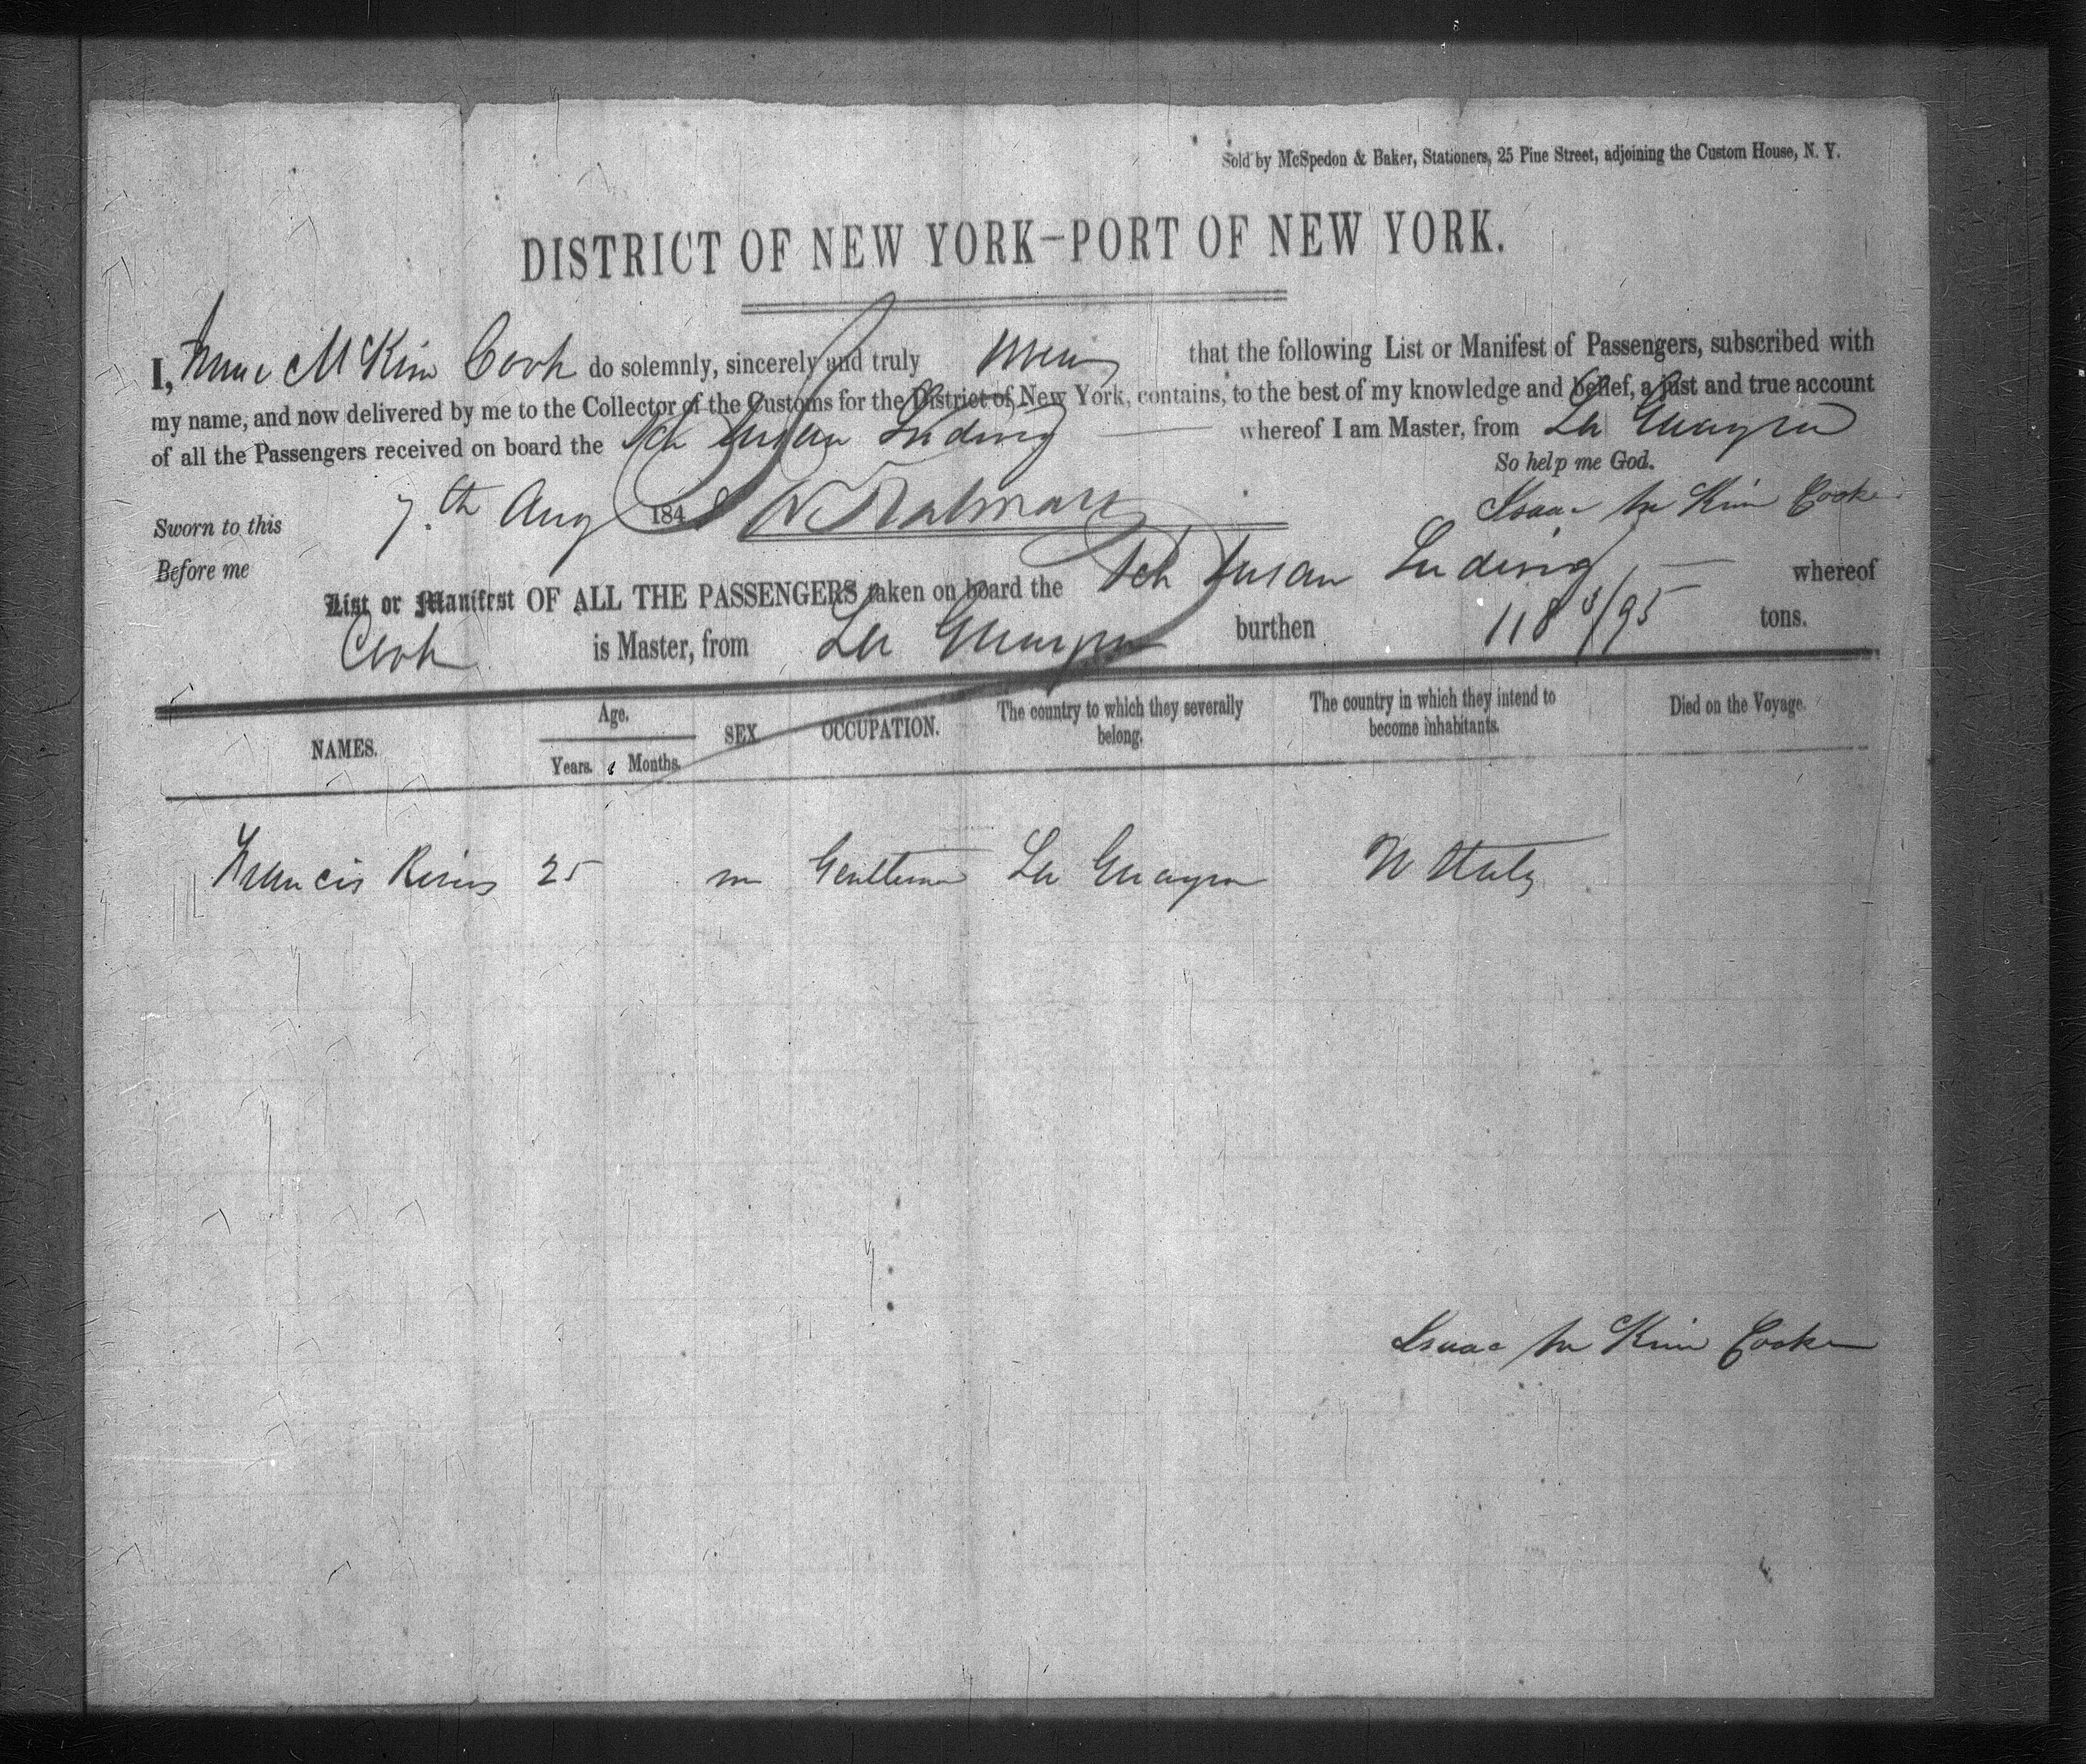 Sold by McSpedon & Baker, Stationers, 25 Pine Street, adjoining the Custom House, N. Y.
DISTRICT OF NEW YORK—PORT OF NEW YORK.
I, Isaac M Kim Cook do solemnly, sincerely and truly swear that the following List or Manifest of Passengers, subscribed with
my name, and now delivered by me to the Collector of the Customs for the District of New York, contains, to the best of my knowledge and belief, a just and true account
of all the Passengers received on board the Sch Susan Luding whereof I am Master, from La Guayra
So help me God.
Sworn to this 7th Aug 1848 Isaac M Kim Cooke
Before me
List or Manifest OF ALL THE PASSENGERS taken on board the Sch Susan Luding whereof
Cook is Master, from La Guayra burthen 118 /95 tons.
NAMES. Age. Years. Months. SEX OCCUPATION. The country to which they severally belong. The country in which they intend to become inhabitants. Died on the Voyage.
Francis 25 m Gentleman La Guayra U States
Isaac M Kim Cooke